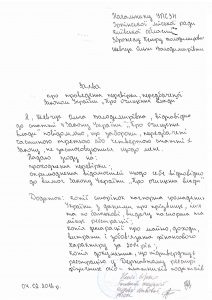 Начальнику УПСЗН
Ірпінської міської ради
Київської області
Заява
про проведення перевірки, передбаченої
Законом України „Про очищення влади”
Я, Шевчук Олена Володимирівна відповідно
до статті 4 Закону України „Про очищення
влади” повідомляю, що заборони, передбачені
частиною третьою або четвертою статті 1
Закону, не застосовуються щодо мене.
Надаю згоду на:
проходження перевірки;
оприлюднення відомостей щодо себе відповідно
до вимог Закону України „Про очищення влади”.
Додатки: копії сторінок паспорта громадянина
України з даними про прізвище, ім'я
та по батькові, видачу паспорта та
місце реєстрації;
копія декларації про майно, доходи,
витрати і зобов'язання фінансового
характеру за 2015 рік;
копія документа, що підтверджує
реєстрацію у Державному реєстрі
фізичних осіб – платників податків